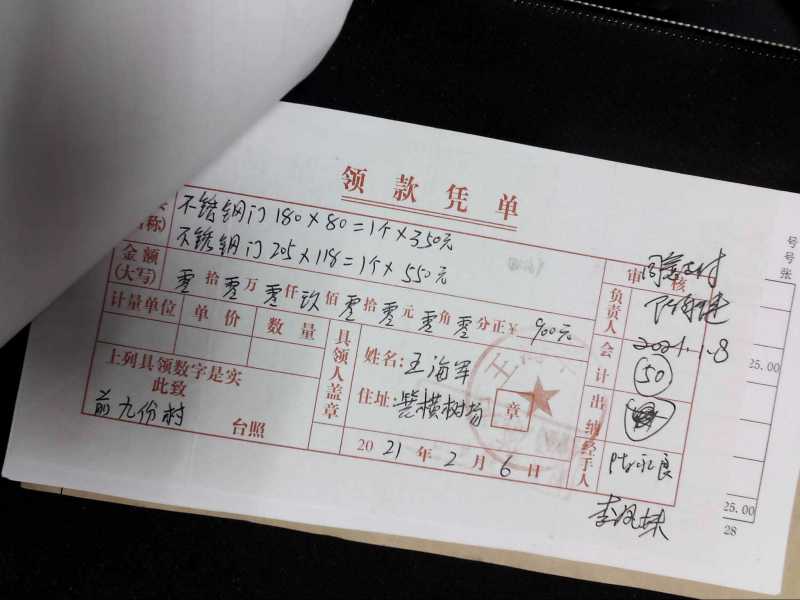 领款凭单
称)
不锈钢门180×80=1个×350元
不锈钢门205×118=1个×550元
金额
(大写)
零拾零万零仟玖佰零拾零元零角零分正¥ 900元
计量单位 单价 数量
上列具领数字是实
此致
前九份村
台照
具领人盖章
姓名:王海军
住址:横树坊
章
2021年2月6日
审核
同意支付
负责人
会计
2021.1.8
50
出纳
经手人
号
号
张
25.00
25.00
28